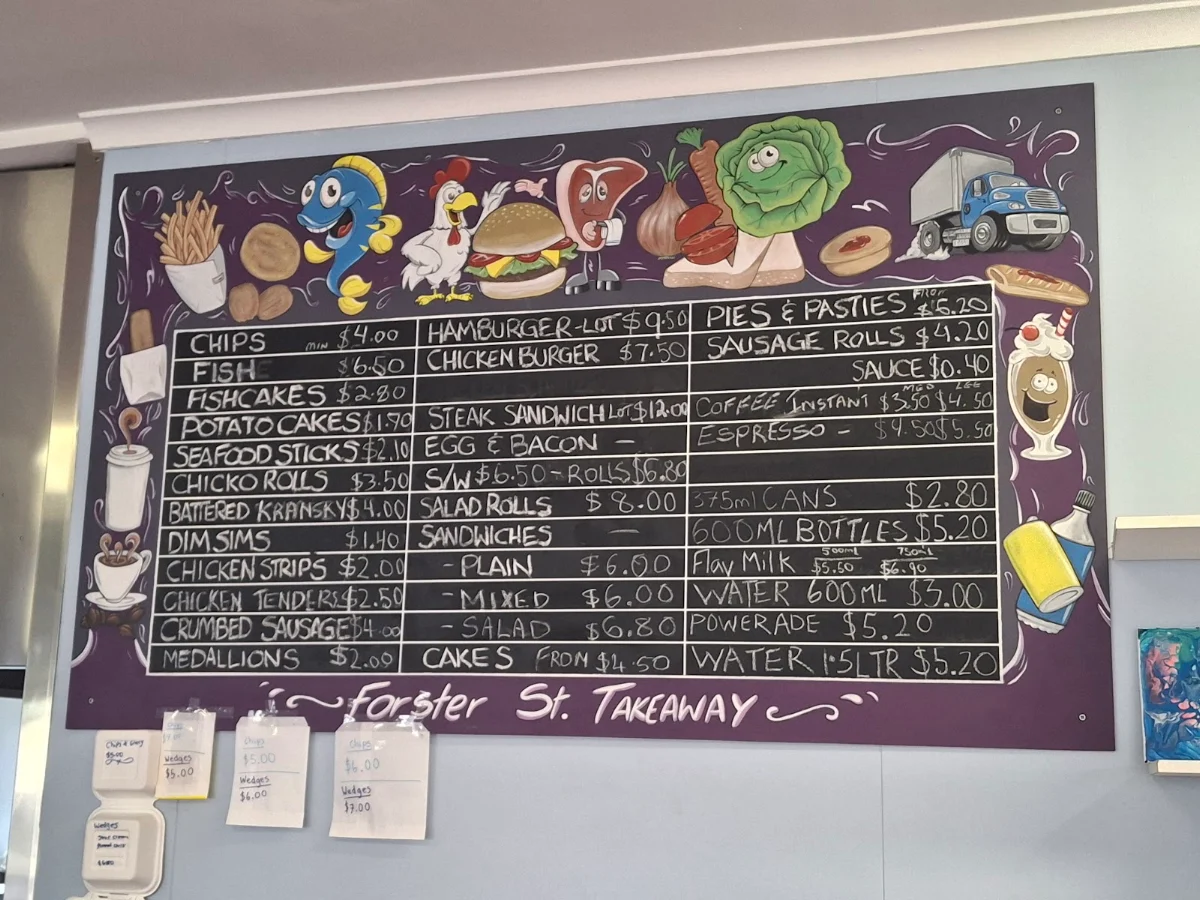 CHIPS MIN $4.00
FISH $6.50
FISHCAKES $2.80
POTATO CAKES $1.70
SEAFOOD STICKS $2.10
CHICKO ROLLS $3.50
BATTERED KRANSKY $4.00
DIM SIMS $1.40
CHICKEN STRIPS $2.00
CHICKEN TENDERS $2.50
CRUMBED SAUSAGE $4.00
MEDALLIONS $2.00
HAMBURGER-LOT $9.50
CHICKEN BURGER $7.50
STEAK SANDWICH LOT $12.00
EGG & BACON -
S/W $6.50 - ROLLS $6.80
SALAD ROLLS $8.00
SANDWICHES -
-PLAIN $6.00
-MIXED $6.00
-SALAD $6.80
CAKES FROM $4.50
PIES & PASTIES FROM $5.20
SAUSAGE ROLLS $4.20
SAUCE $0.40
MED LGE
COFFEE INSTANT $3.50 $4.50
ESPRESSO - $4.50 $5.50
375ml CANS $2.80
600ML BOTTLES $5.20
Flav Milk 500ml $5.50 750ml $6.90
WATER 600ML $3.00
POWERADE $5.20
WATER 1.5LTR $5.20
Forster St. TAKEAWAY
Chips & Gravy
$5.00
Wedges
Sour Cream
Chips
Wedges
$5.00
Chips
$5.00
Wedges
$6.00
Chips
$6.00
Wedges
$7.00